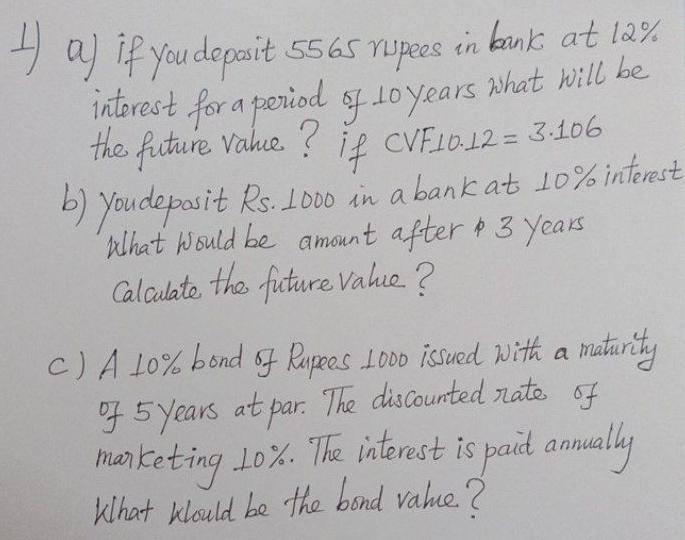 1) a) if you deposit 5565 rupees in bank at 12%
interest for a period of 10 years what will be
the future value ? if CVF10.12 = 3.106
b) you deposit Rs. 1000 in a bank at 10% interest
What would be amount after 3 years
Calculate the future value ?
c) A 10% bond of Rupees 1000 issued with a maturity
of 5 years at par. The discounted rate of
marketing 10%. The interest is paid annually
What would be the bond value ?